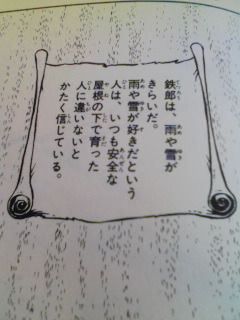 鉄郎は、雨や雪が
きらいだ。
雨や雪が好きだという
人は、いつも安全な
屋根の下で育った
人に違いないと
かたく信じている。